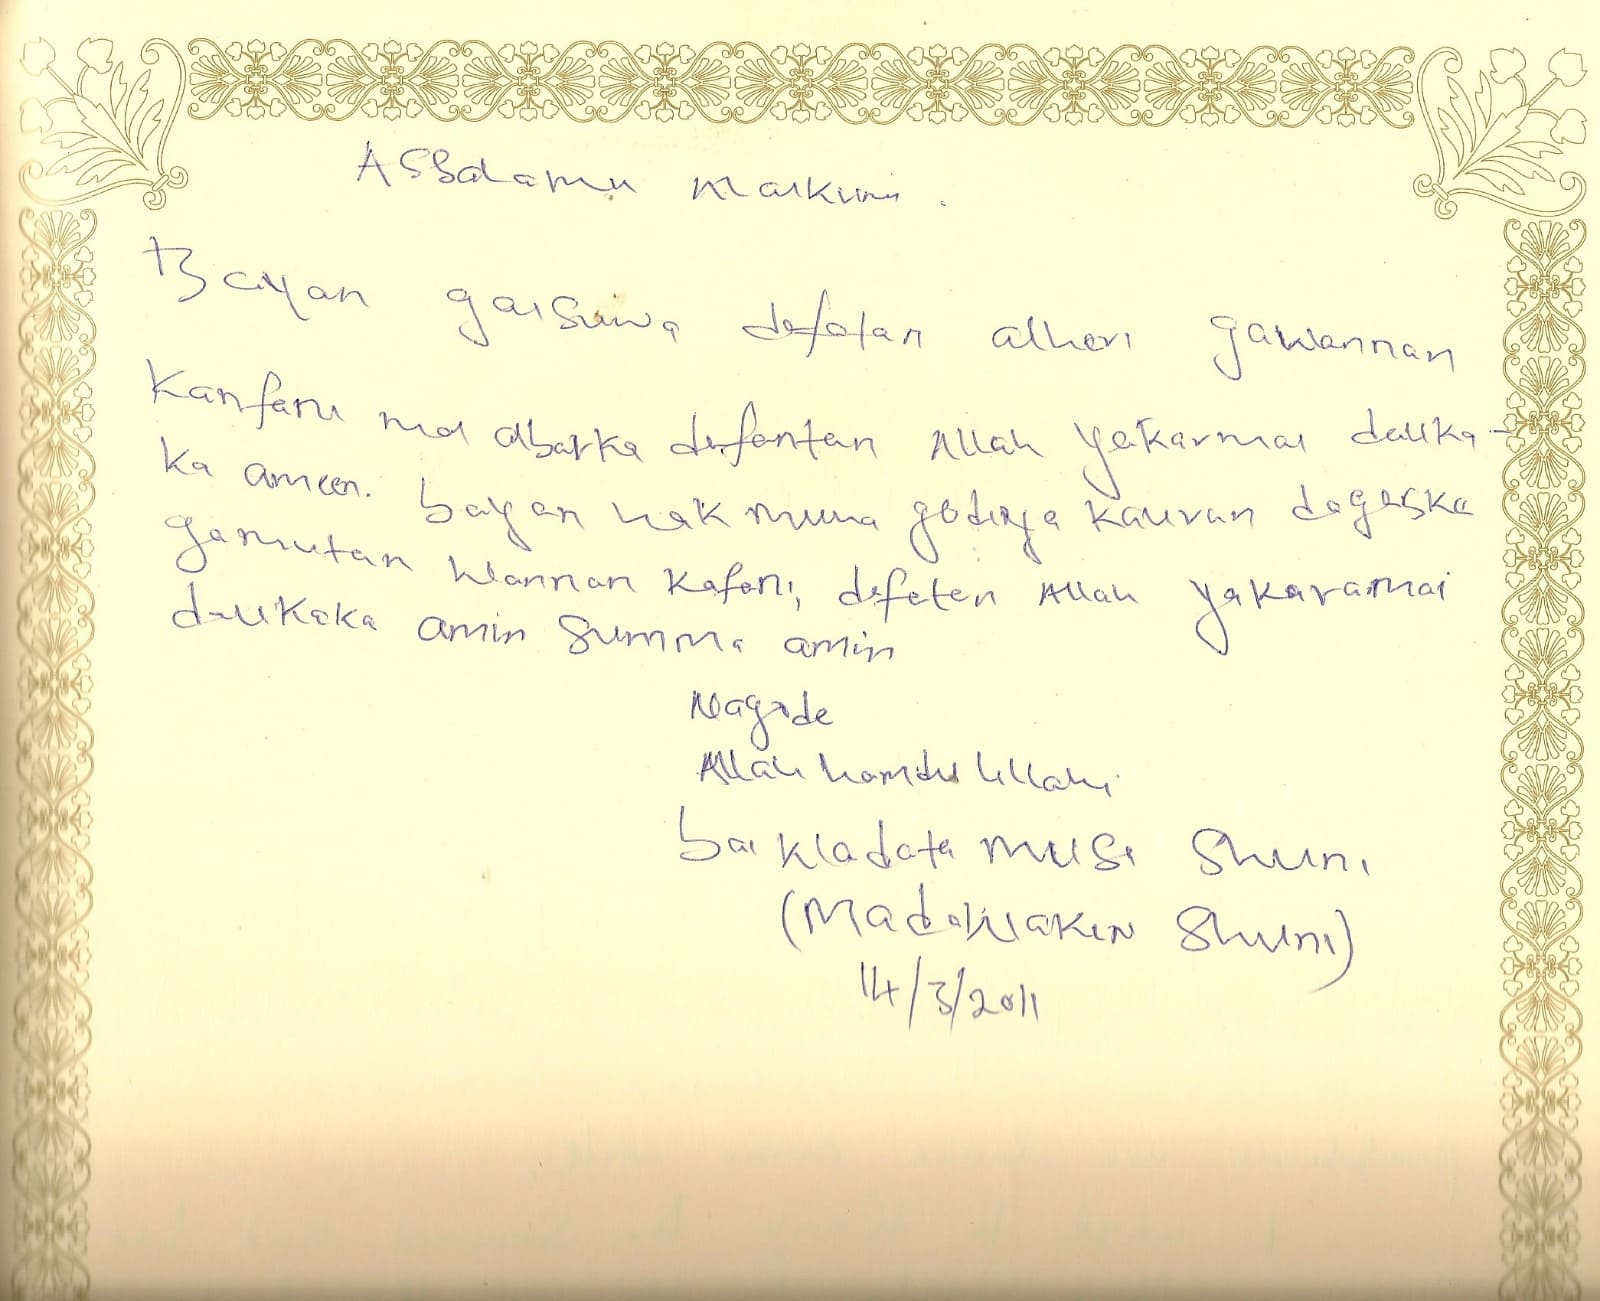 Assalamu Malkum.
Bayan gaisuwa defatan alheri gawannan
Kanfani mai albarka defantan Allah yakarmai dauka-
ka ameen. bayan hak muna godiya kauran dagaske
gamutan Wannan Kafani, defeten Allah yakaramai
daukaka amin Summa amin
Nagode
Allah hamdu lillahi
Musa Shuni
(Madawakin Shuni)
14/3/2011